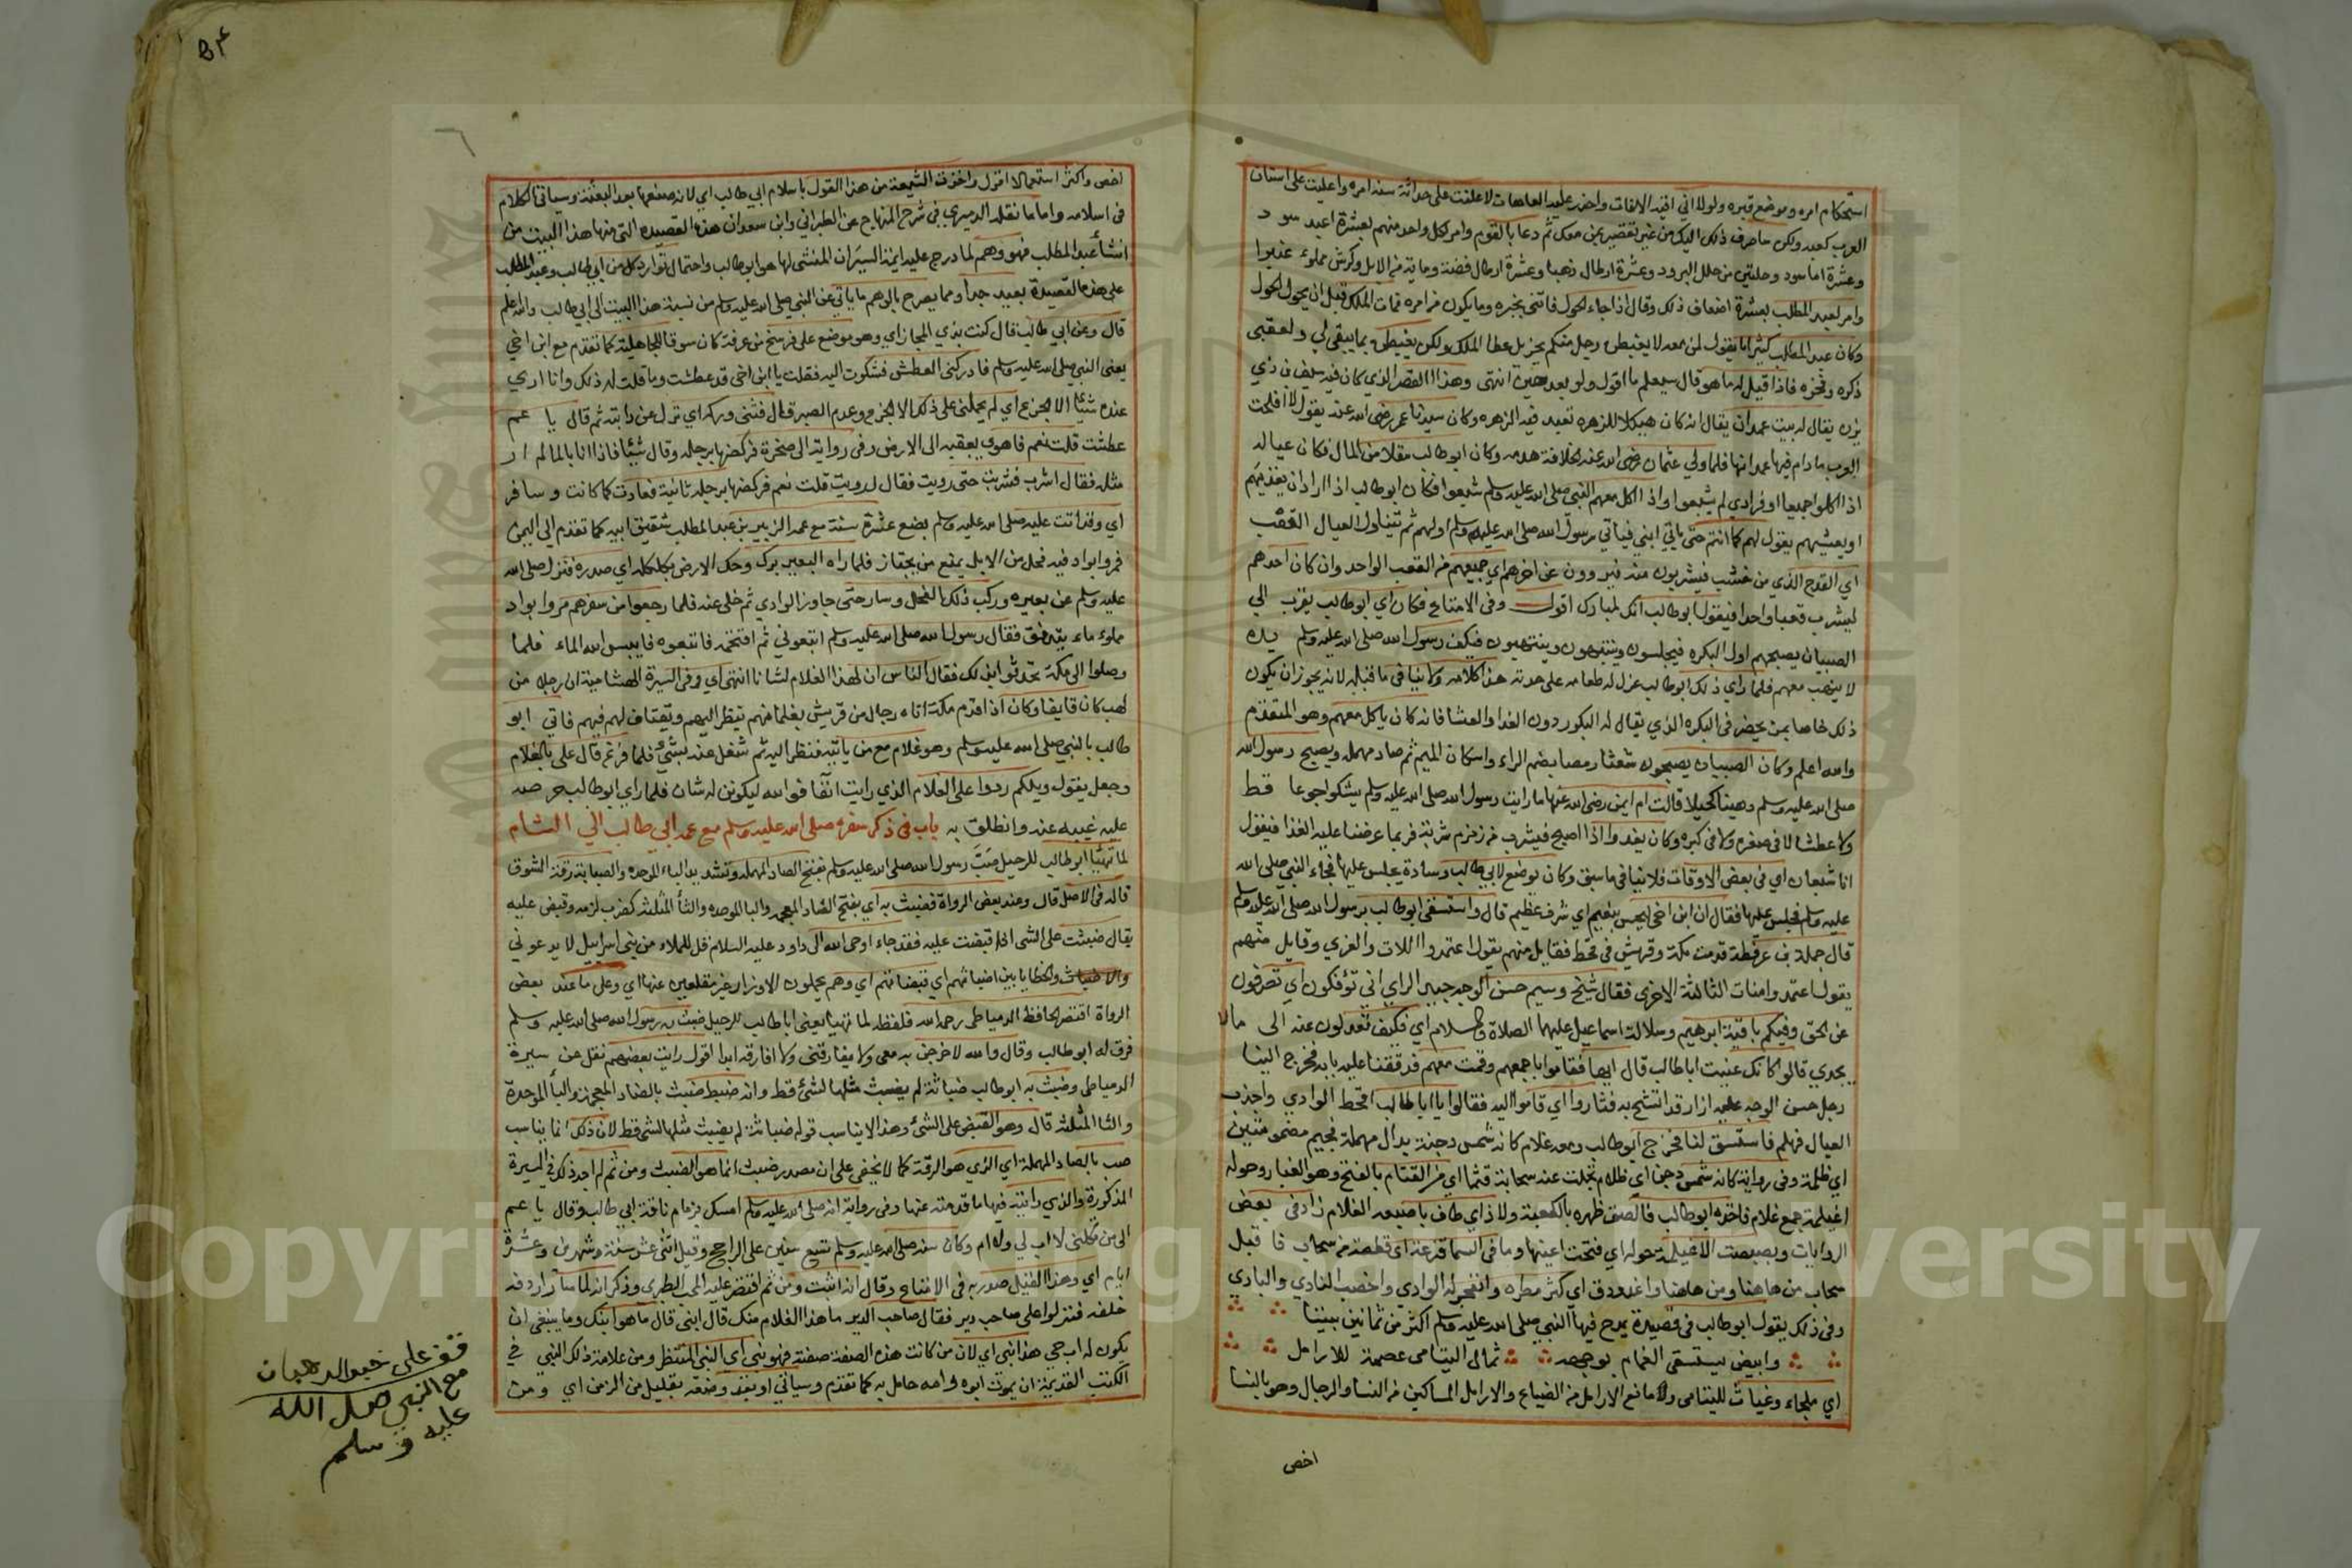 استحكام امره وموضع قبره ولولا اني اقيه الافات واحذر عليه العاهات لاعلنت على حداثة سنه امره واعليت على اسنان
العرب كعبه ولكن صارف ذلك اليك من غير تقصير بمن معك ثم دعا بالقوم وامر لكل واحد منهم بعشرة اعبد سود
وعشرة اما سود وحلتين من حلل البرود وعشرة ارطال ذهبا وعشرة ارطال فضة وماية من الابل وكرش مملوء عنبرا
وامر لعبد المطلب بعشرة اضعاف ذلك وقال اذا جاء الحول فاتني بخبره وما يكون من امره فمات الملك قبل ان يحول الحول
وكان عبد المطلب كثيرا ما يقول لمن معه لا يغبطن رجل منكم بجزيل عطا الملك ولكن يغبطني بما يبقى لي ولعقبى
ذكره وفخره فاذا قيل له ما هو قال سيعلم ما اقول ولو بعد حين انتهى وهذا القصر الذي كان فيه سيف بن ذي
يزن يقال له بيت عمدان يقال انه كان هيكلا للزهره تعبد فيه الزهره وكان سيدنا عمر رضي الله عنه يقول لا افلحت
العرب ما دام فيها عمدانها فلما ولي عثمان رضي الله عنه الخلافة هدمه وكان ابو طالب مقلا من المال فكان عياله
اذا اكلوا جميعا او فرادي لم يشبعوا واذا اكل معهم النبي صلى الله عليه وسلم شبعوا فكان ابو طالب اذا اراد ان يغذيهم
او يعشيهم يقول لهم كما انتم حتى ياتي ابني فياتي رسول الله صلى الله عليه وسلم اولهم ثم تتناول العيال القعب
اي القدح الذي من خشب فيشربون منه فيروون عن اخرهم اي جميعهم من القعب الواحد وان كان احدهم
ليشرب قعبا واحدا فيقول ابو طالب انك لمبارك اقول وفي الامتاع فكان اي ابو طالب يقرب الي
الصبيان يصبحهم اول البكره فيجلسون وينتهبون فيكف رسول الله صلى الله عليه وسلم يده
لا ينهب معهم فلما راي ذلك ابو طالب عزل له طعامه على حدته هذا كلامه ولا ينافي ما قبله لانه يجوز ان يكون
ذلك خاصا بمن يحضر في البكره الذي يقال له البكور دون الغدا والعشا فانه كان ياكل معهم وهو المتقدم
والله اعلم وكان الصبيان يصبحون شعثا رمصا بضم الراء واسكان الميم ثم صاد مهمله ويصبح رسول الله
صلى الله عليه وسلم دهينا كحيلا قالت ام ايمن رضي الله عنها ما رايت رسول الله صلى الله عليه وسلم يشكوا جوعا قط
ولا عطشا لا في صغره ولا في كبره وكان يغدوا اذا اصبح فيشرب من زمزم شربة فربما عرضنا عليه الغدا فيقول
انا شبعان اي في بعض الاوقات فلا ينافي ما سبق وكان يوضع لابي طالب وسادة يجلس عليها فجاء النبي صلى الله
عليه وسلم فجلس عليها فقال ان ابن اخي ليحس بنعيم اي شرف عظيم قال واستسقى ابو طالب برسول الله صلى الله عليه وسلم
قال جلهمة بن عرفطة قدمت مكة وقريش في قحط فقايل منهم يقول اعتمدوا اللات والعزي وقايل منهم
يقول اعتمدوا منات الثالثة الاخرى فقال شيخ وسيم حسن الوجه جيد الراي اني تؤفكون اي تصرفون
عن الحق وفيكم باقية ابرهيم وسلالة اسماعيل عليهما الصلاة والسلام اي فكيف تعدلون عنه الى ما لا
يجدي قالوا كانك عنيت ابا طالب قال ايها فقاموا باجمعهم وقمت معهم فدققنا عليه بابه فخرج الينا
رجل حسن الوجه عليه ازار قد اتشح به فثاروا اي قاموا اليه فقالوا يا ابا طالب اقحط الوادي واجدب
العيال فهلم فاستسق لنا فخرج ابو طالب ومعه غلام كانه شمس دجنة بدال مهملة فجيم مضمومتين
اي ظلمة وفي رواية كانه شمس دجن اي ظلام تجلت عنه سحابة قتما اي من القتام بالفتح وهو الغبار وحوله
اغيلمة جمع غلام فاخذه ابو طالب فالصق ظهره بالكعبة ولاذ اي طاف باصبعه الغلام زاد في بعض
الروايات وبصبصت الاغيلمة حوله اي فتحت اعينها وما في السما قزعة اي قطعة من سحاب فاقبل
سحاب من هاهنا ومن هاهنا واغدودق اي كثر مطره وانفجر له الوادي واخصب النادي والبادي
وفي ذلك يقول ابو طالب في قصيدة يمدح فيها النبي صلى الله عليه وسلم اكثر من ثمانين بيتا
وابيض يستسقى الغمام بوجهه ثمال اليتامى عصمة للارامل
اي ملجاء وغياث لليتامى ومانع الارامل من الضياع والارامل المساكين من النسا والرجال وهو بالنسا
اخص
اخص واكثر استعمالا اقول واخذت الشيعة من هذا القول باسلام ابي طالب اي لانه صنعها بعد البعثة وسياتي الكلام
في اسلامه واما ما نقله الدميري في شرح المنهاج عن الطبراني وابن سعد ان هذه القصيدة التي منها هذا البيت من
انشأ عبد المطلب فهو وهم لما درج عليه ايمة السير ان المنشى لها هو ابو طالب واحتمال توارد كل من ابي طالب وعبد المطلب
على هذه القصيدة بعيد جدا ومما يصرح بالوهم ما ياتي عن النبي صلى الله عليه وسلم من نسبة هذا البيت الى ابي طالب والله اعلم
قال وعن ابي طالب قال كنت بذي المجاز اي وهو موضع على فرسخ من عرفة كان سوقا للجاهلية كما تقدم مع ابن اخي
يعني النبي صلى الله عليه وسلم فادركني العطش فشكوت اليه فقلت يا ابن اخي قد عطشت وما قلت له ذلك وانا اري
عنده شيئا الا الجزع اي لم يحملني على ذلك الا الجزع وعدم الصبر قال فثني وركه اي نزل عن دابته ثم قال يا عم
عطشت قلت نعم فاهوي بعقبه الى الارض وفي رواية الى صخرة فركضها برجله وقال شيئا فاذا انا بالماء لم ار
مثله فقال اشرب فشربت حتى رويت فقال ارويت قلت نعم فركضها برجله ثانية فعادت كما كانت وسافر
اي وقد اتت عليه صلى الله عليه وسلم بضع عشرة سنة مع عمه الزبير بن عبد المطلب شقيق ابيه كما تقدم الي اليمن
فمروا بواد فيه فحل من الابل يمنع من يجتاز فلما راه البعير برك وحك الارض بكلكله اي صدره فنزل صلى الله
عليه وسلم عن بعيره وركب ذلك الفحل وسار حتى جاوز الوادي ثم خلى عنه فلما رجعوا من سفرهم مروا بواد
مملوء ماء يتدفق فقال رسول الله صلى الله عليه وسلم اتبعوني ثم اقتحمه فاتبعوه فايبس الله الماء فلما
وصلوا الى مكة تحدثوا بذلك فقال الناس ان لهذا الغلام لشانا انتهى اي وفي السيرة الهشامية ان رجلا من
لهب كان قايفا وكان اذا قدم مكة اتاه رجال من قريش بغلمانهم ينظر اليهم ويقتاف لهم فيهم فاتي ابو
طالب بالنبي صلى الله عليه وسلم وهو غلام مع من ياتيه فنظر اليه ثم شغل عنه بشئ فلما فرغ قال علي بالغلام
وجعل يقول ويلكم ردوا علي الغلام الذي رايت آنفا فوالله ليكونن له شان فلما راي ابو طالب حرصه
عليه غيبه عنه وانطلق به باب في ذكر سفره صلى الله عليه وسلم مع عمه ابي طالب الي الشام
لما تهيئا ابو طالب للرحيل صب رسول الله صلى الله عليه وسلم بفتح الصاد المهمله وتشديد الباء الموحده والصبابة رقة الشوق
قاله في الاصل قال وعند بعض الرواة فضبث به اي بفتح الضاد المعجمه والبا الموحده والثأ المثلثة كضرب لزمه وقبض عليه
يقال ضبثت على الشي اذا قبضت عليه فقد جاء اوحى الله الى داود عليه السلام قل للملاء من بني اسرايل لا يدعوني
والخطايا بين اضباثهم اي قبضاتهم اي وهم يحملون الاوزار غير مقلعين عنها اي وعلى ما عند بعض
الرواة اقتصر الحافظ الدمياطي رحمه الله فلفظه لما تهيا يعني ابا طالب للرحيل ضبث به رسول الله صلى الله عليه وسلم
فرق له ابو طالب وقال والله لاخرجن به معي ولا يفارقني ولا افارقه ابدا اقول رايت بعضهم نقل عن سيرة
الدمياطي وضبث به ابو طالب ضباثة لم يضبث مثلها لشئ قط وانه ضبط ضبث بالضاد المعجمة والبأ الموحدة
والثا المثلثة قال وهو القبض على الشئ وهذا لا يناسب قوله ضباثة لم يضبث مثلها لشي قط لان ذلك انما يناسب
صب بالصاد المهملة اي الذي هو الرقة كما لا يخفى على ان مصدر ضبث انما هو الضبث ومن ثم لم اجد ذلك في السيرة
المذكورة والذي رايته فيها ما قدمته عنها وفي رواية انه صلى الله عليه وسلم امسك بزمام ناقة ابي طالب وقال يا عم
الى من تكلني لا اب لي ولا ام وكان سنه صلى الله عليه وسلم تسع سنين على الراجح وقيل اثني عشر سنة وشهرين وعشرة
ايام اي وهذا القيل صدر به في الامتاع وقال انه اثبت ومن ثم اقتصر عليه المحب الطبري وذكر انه لما سار اردفه
خلفه فنزلوا على صاحب دير فقال صاحب الدير ما هذا الغلام منك قال ابني قال ما هو ابنك وما ينبغي ان
يكون له اب حي هذا نبي اي لان من كانت هذه الصفة صفته فهو نبي اي النبي المنتظر ومن علامة ذلك النبي في
الكتب القديمة ان يموت ابوه وامه حامل به كما تقدم وسياتي او بعد وضعه بقليل من الزمن اي ومن
قف على خبر الرهبان
مع النبي صلى الله
عليه وسلم